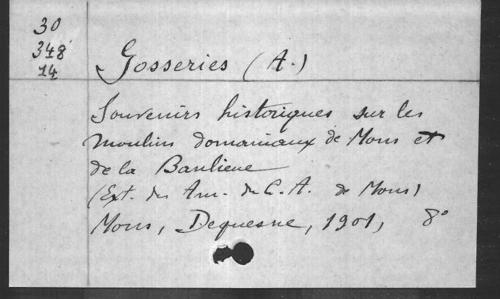 30
348
14
Gosseries (A.)
Souvenirs historiques sur les
moulins domaniaux de Mons et
de la Banlieue
(Ext. des Ann. du C. A. de Mons)
Mons, Dequesne, 1901, 8°